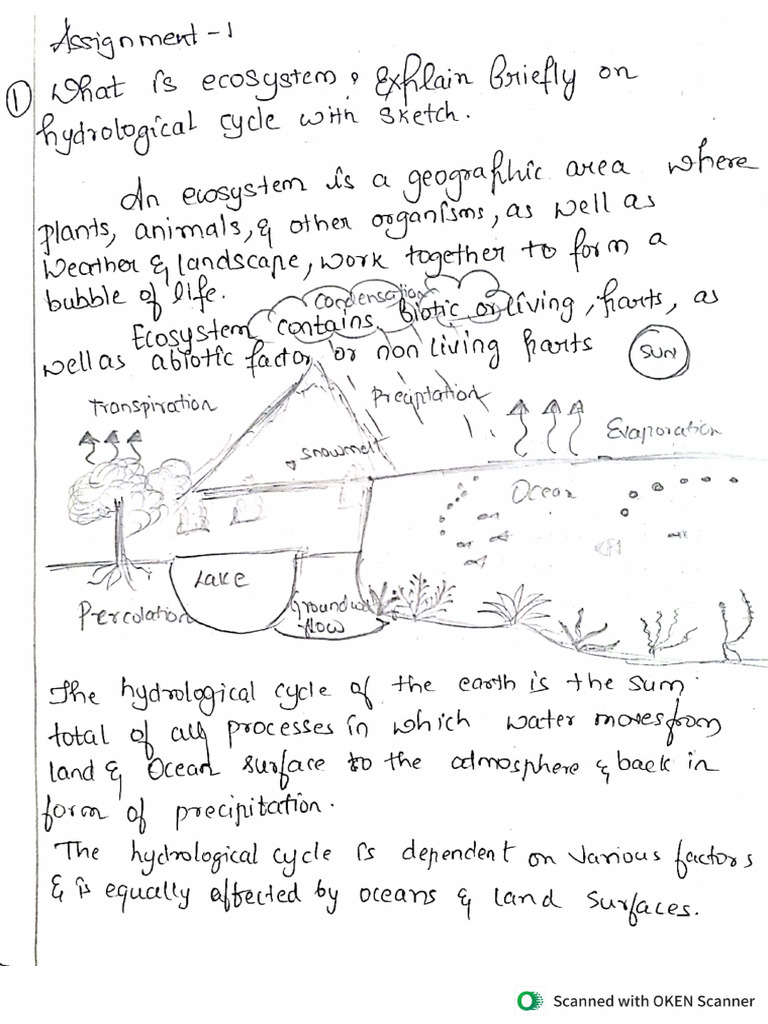 Assignment - 1
① What is ecosystem, Explain Briefly on
hydrological cycle with sketch.
An ecosystem is a geographic area where
plants, animals, & other organisms, as well as
weather & landscape, work together to form a
bubble of life.
Condensation
Ecosystem contains, Biotic or living, parts, as
well as abiotic factor, or non living parts
SUN
Transpiration
Preciptation
Snowmelt
Evaporation
Ocean
Lake
Percolation
Groundw
-flow
The hydrological cycle of the earth is the sum
total of all processes in which water moves from
land & Ocean surface to the atmosphere & back in
form of precipitation.
The hydrological cycle is dependent on various factors
& is equally affected by oceans & land surfaces.
Scanned with OKEN Scanner